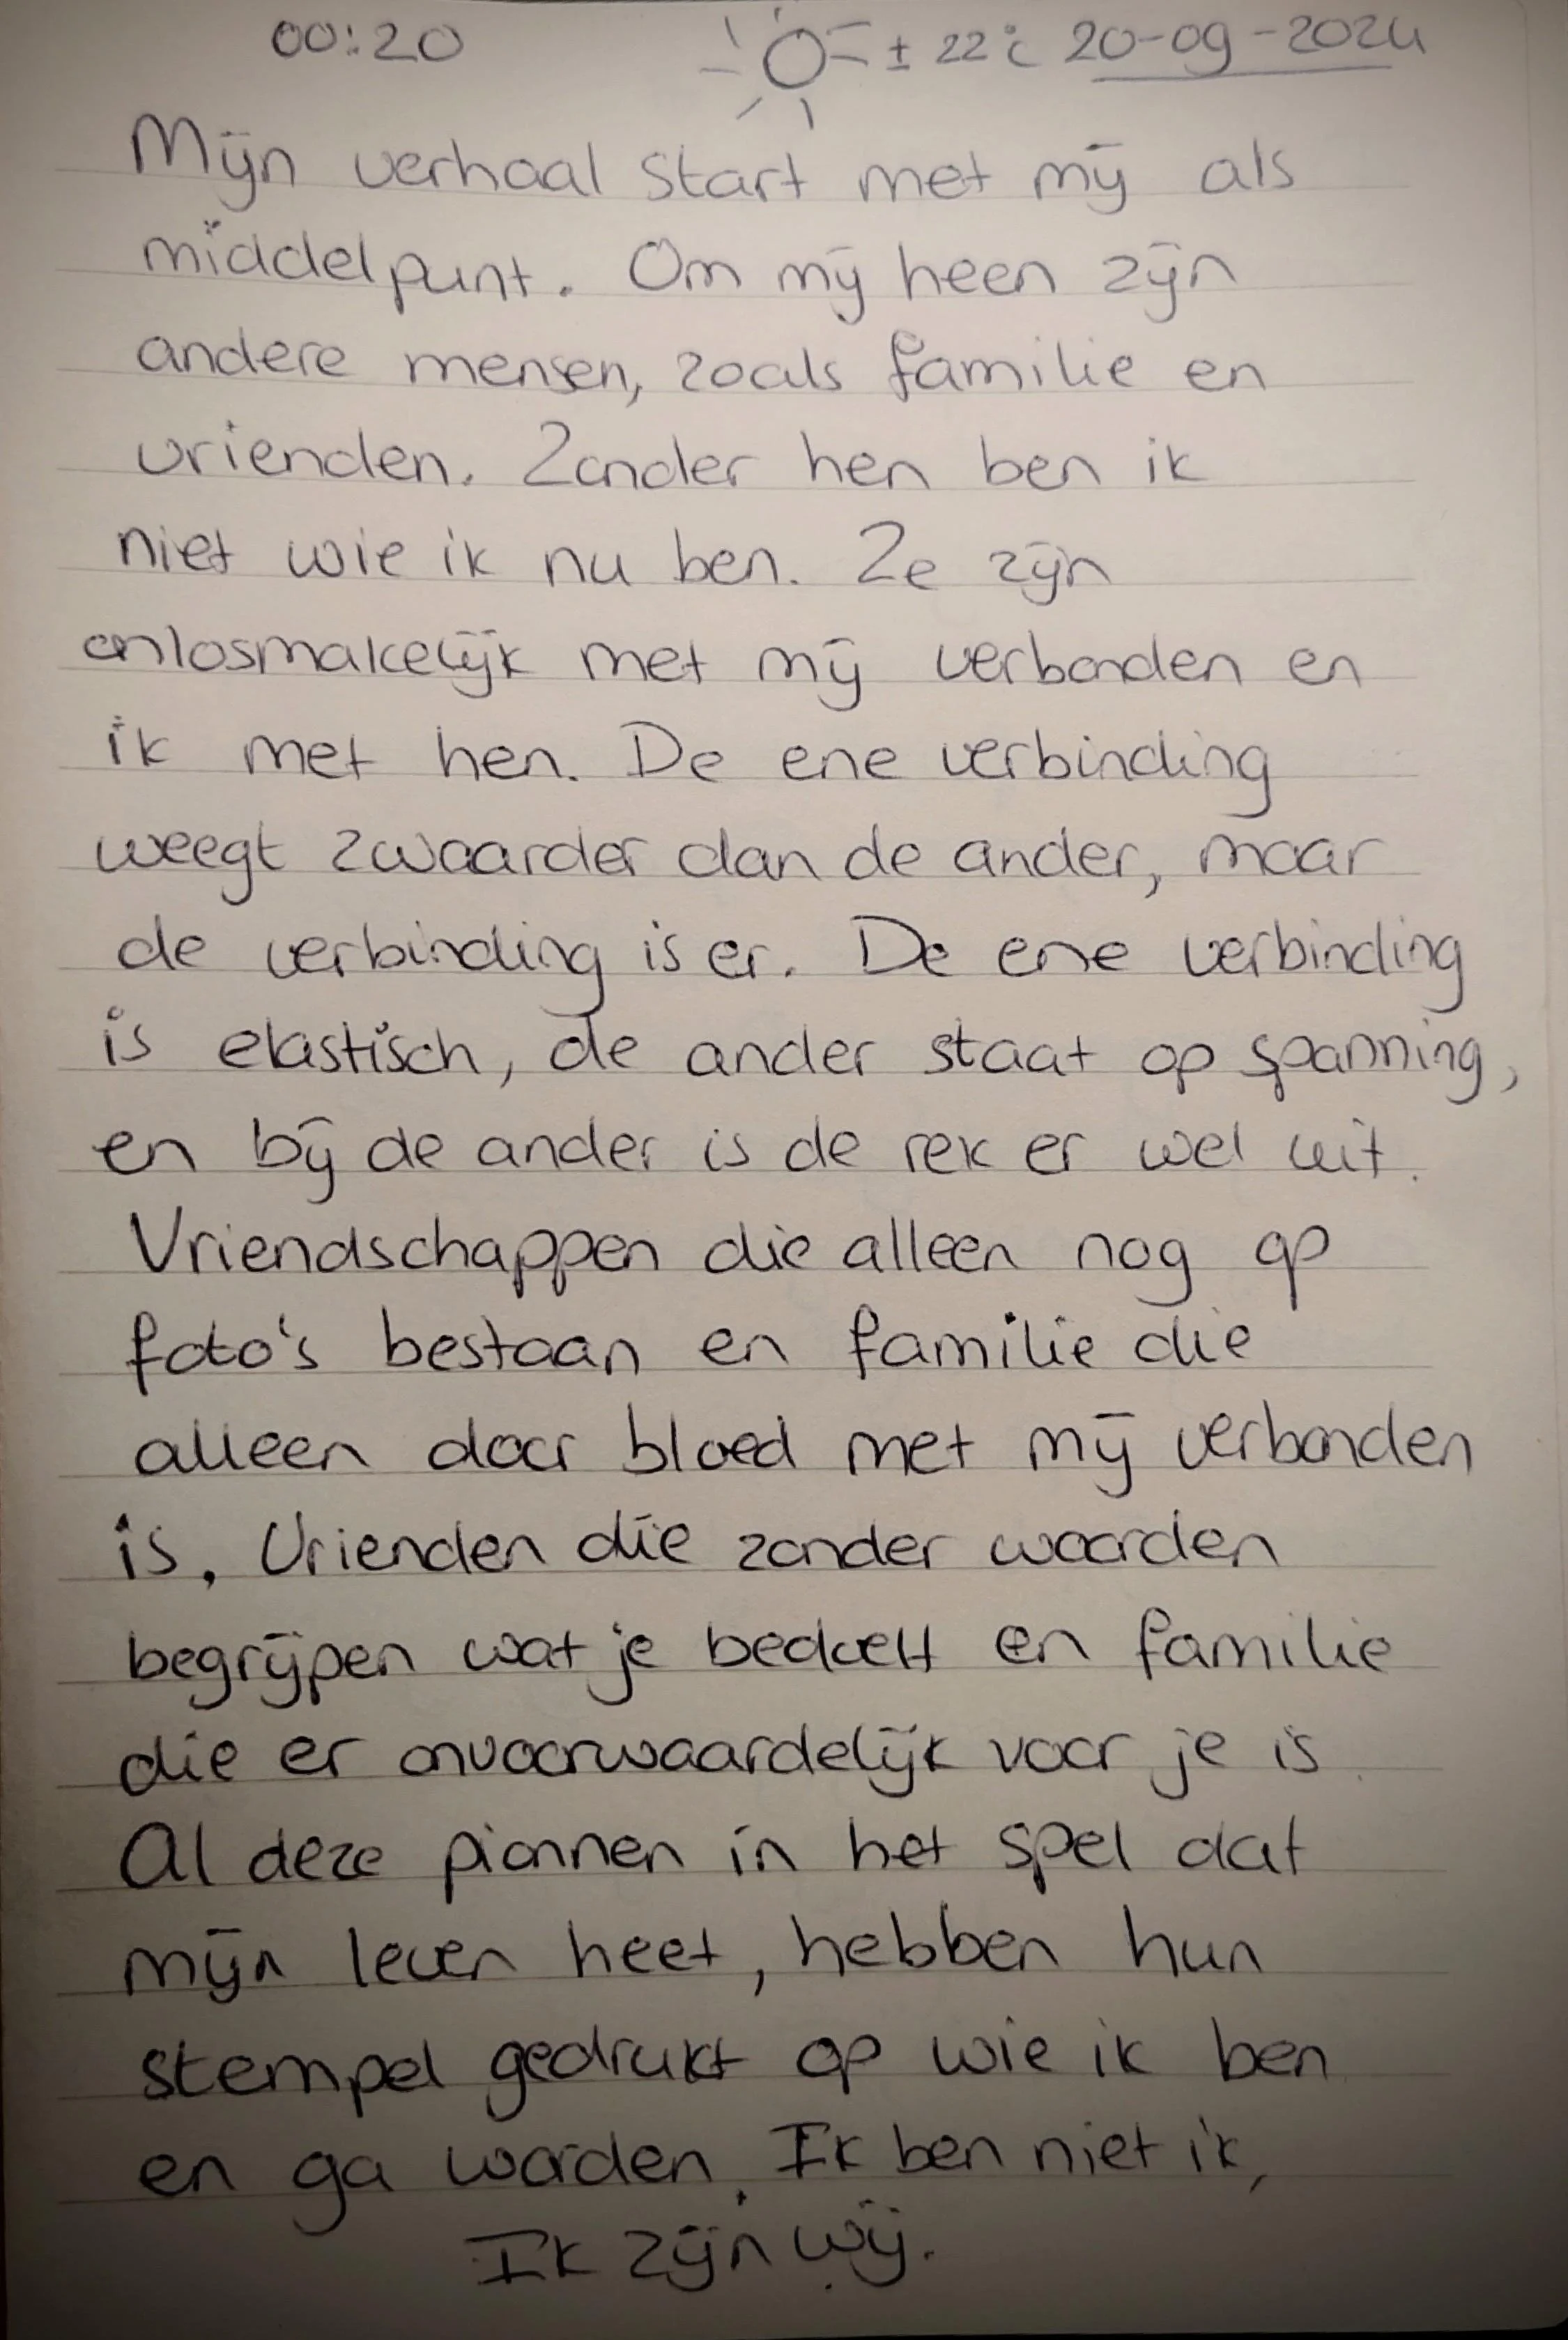 00:20 ± 22°C 20-09-2024
Mijn verhaal start met mij als
middelpunt. Om mij heen zijn
andere mensen, zoals familie en
vrienden. Zonder hen ben ik
niet wie ik nu ben. Ze zijn
onlosmakelijk met mij verbonden en
ik met hen. De ene verbinding
weegt zwaarder dan de ander, maar
de verbinding is er. De ene verbinding
is elastisch, de ander staat op spanning,
en bij de ander is de rek er wel uit.
Vriendschappen die alleen nog op
foto's bestaan en familie die
alleen door bloed met mij verbonden
is. Vrienden die zonder woorden
begrijpen wat je bedoelt en familie
die er onvoorwaardelijk voor je is.
Al deze pionnen in het spel dat
mijn leven heet, hebben hun
stempel gedrukt op wie ik ben
en ga worden. Ik ben niet ik,
Ik zijn wij.